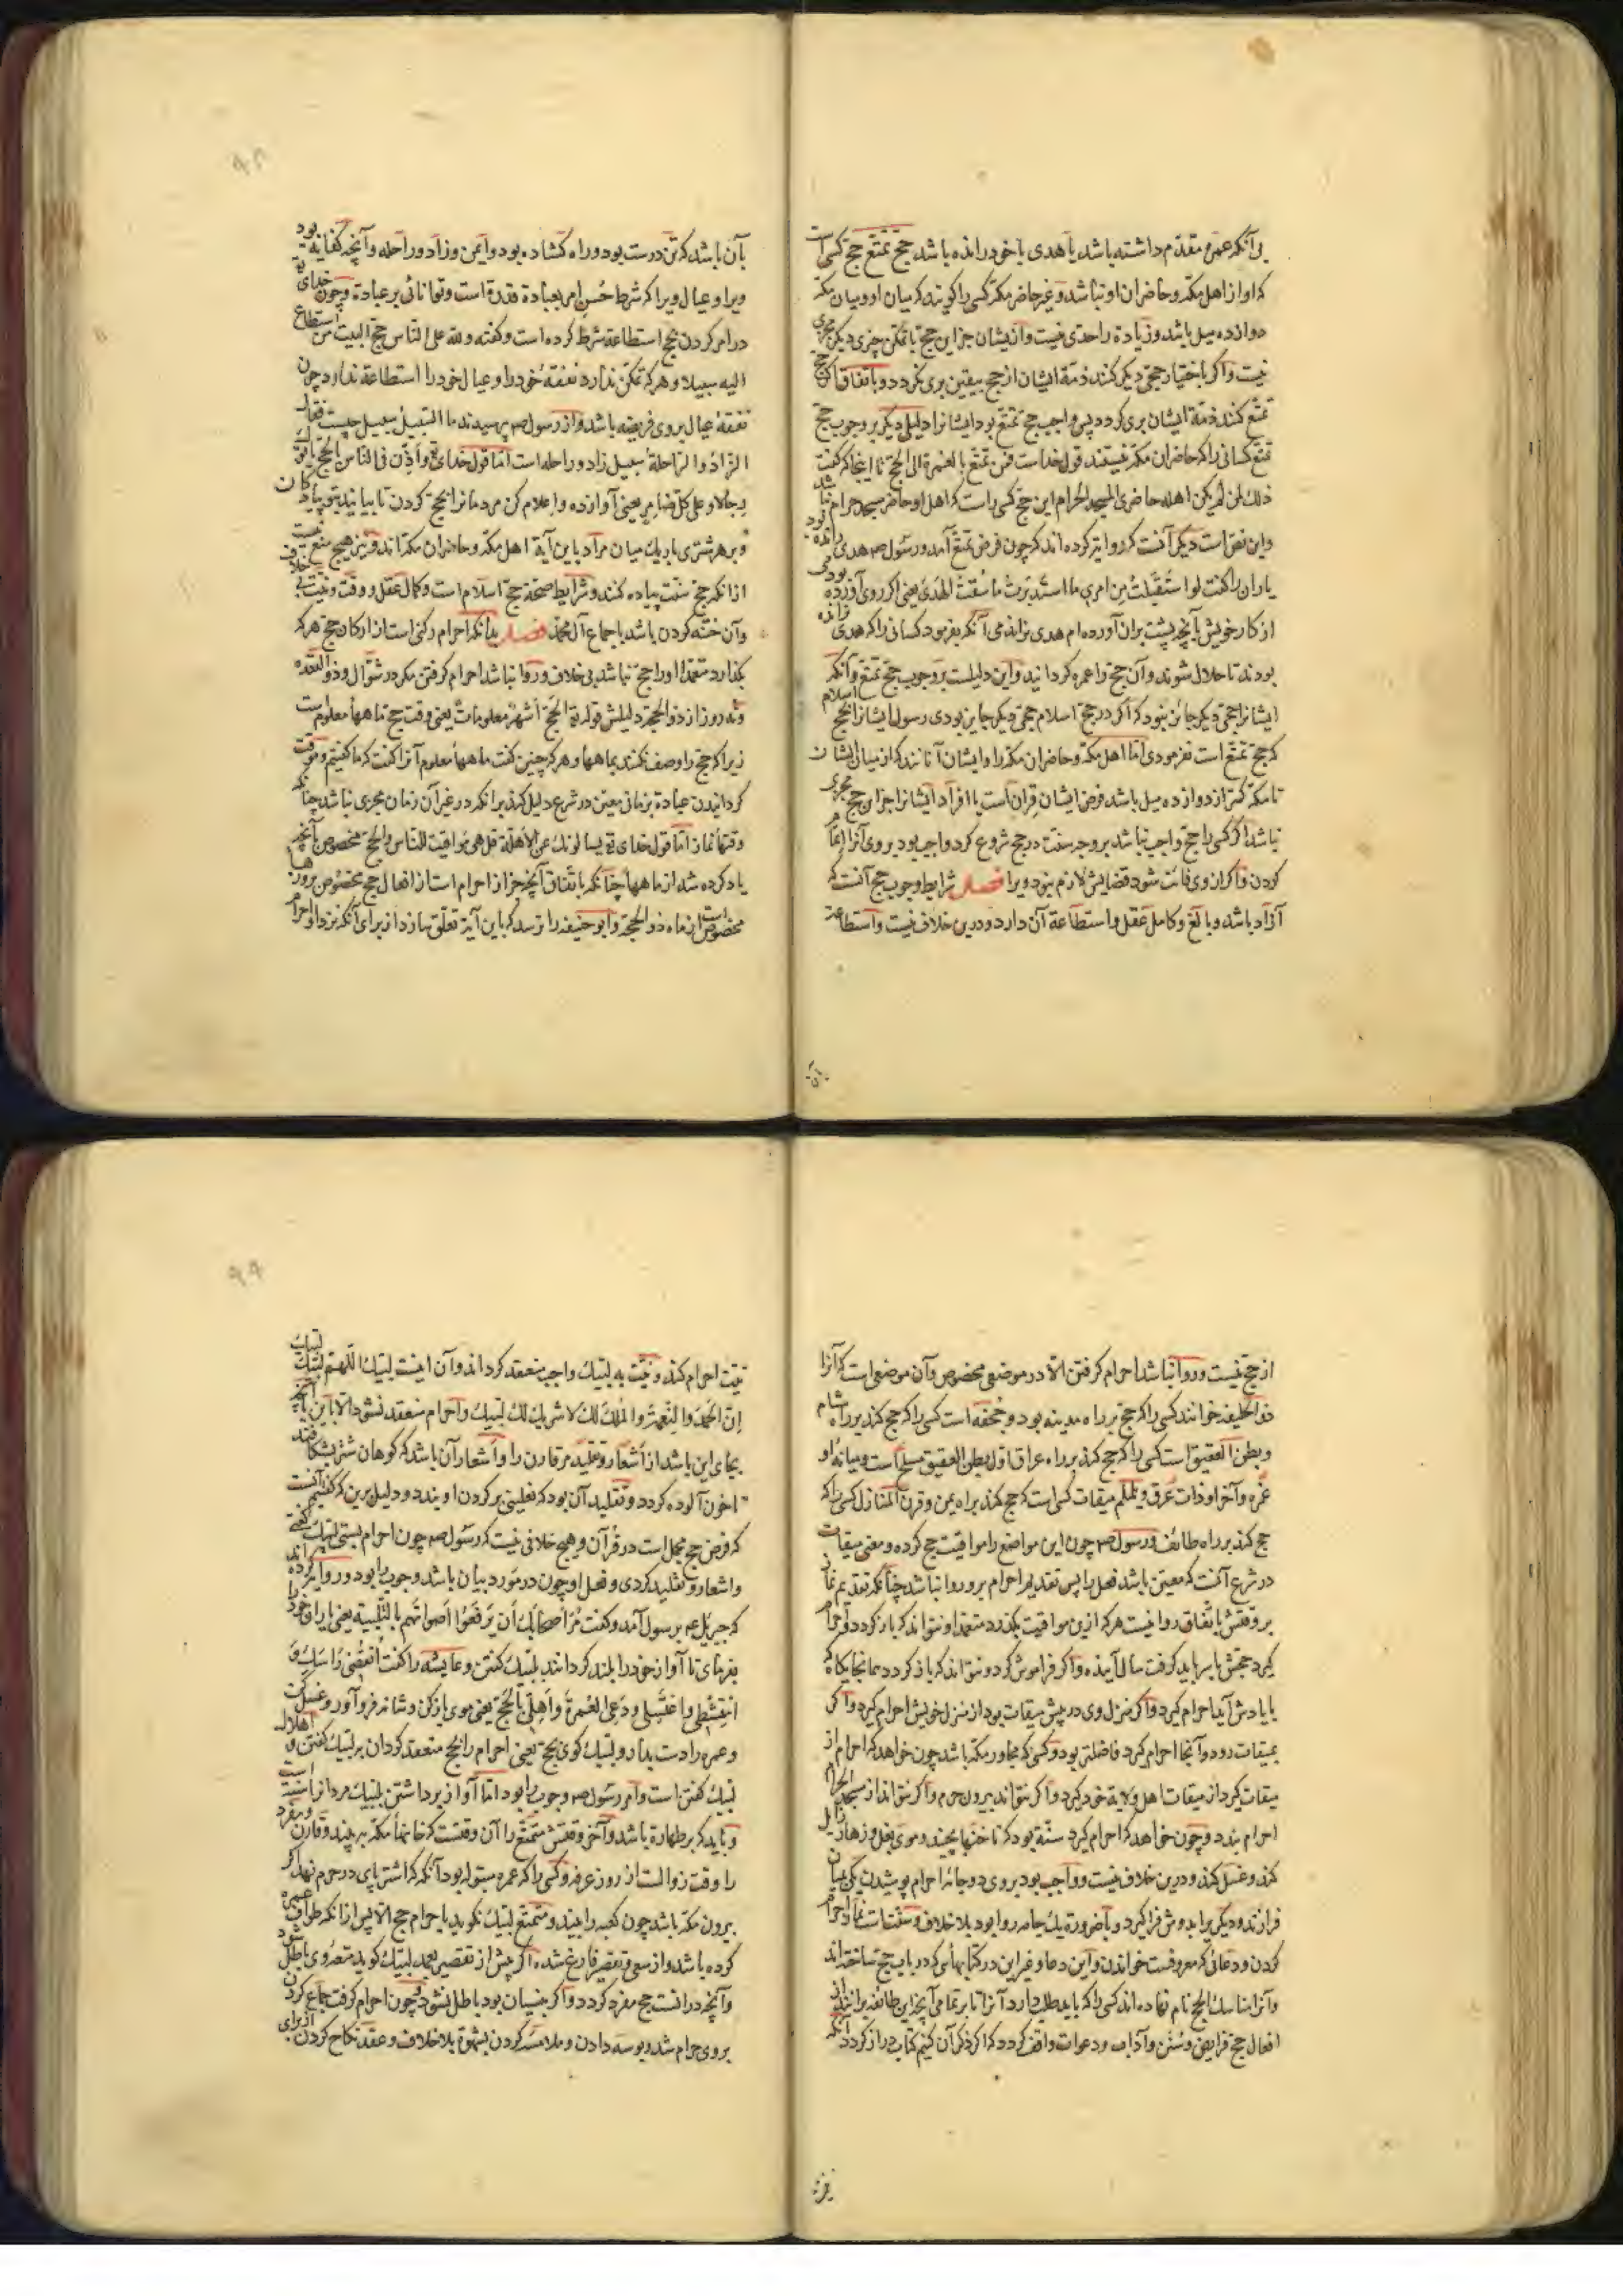 بی آنکه عمره مقدم داشته باشد یا هدی با خود رانده باشد حج تمتع حج کسی است
که او از اهل مکه و حاضران او نباشد و غیر حاضر مکه کسی را گویند که میان او و میان مکه
دوازده میل باشد و زیادة را حدی نیست و از یشان جز این حج با تمکن چیزی دیگر مجزی
نیست و اگر باختیار حجی دیگر کنند ذمة ایشان از حج بیقین بری نگردد و باتفاق اگر حج
تمتع کنند ذمة ایشان بری گردد پس واجب حج تمتع بود ایشانرا دلیلی دیگر بر وجوب حج
تمتع کسانی را که حاضران مکه نیستند قول خداست فمن تمتع بالعمرة الی الحج تا اینجا که گفت
ذلك لمن لم یکن اهله حاضری المسجد الحرام این حج کسی راست که اهل او حاضر مسجد حرام نباشد
و این نص است دیگر آنست که روایة کرده اند که چون فرض تمتع آمد و رسول صم هدی رانده بود
یاران را گفت لو استقبلت من امری ما استدبرت ما سقت الهدی یعنی اگر روی آوردی
از کار خویش بآنچه پشت بران آورده ام هدی نراندمی آنگه بفرمود کسانی را که هدی نرانده
بودند تا حلال شوند و آن حج را عمره گردانند و این دلیلست بر وجوب حج تمتع و آنکه
ایشانرا حجی دیگر جائز نبود که اگر در حج اسلام حجی دیگر جایز بودی رسول ایشانرا بحج اسلام
که حج تمتع است نفرمودی اما اهل مکه و حاضران مکه را و ایشان آنانند که از میان ایشان
تا مکه کمتر از دوازده میل باشد فرض ایشان قران است یا افراد ایشانرا جز این حج مجزی
نباشد اگر کسی را حج واجب نباشد بر وجه سنت در حج شروع کرد واجب بود بر وی آنرا اتمام
کردن و اگر از وی فائت شود قضایش لازم بنود ویرا فصل شرایط وجوب حج آنست که
آزاد باشد و بالغ و کامل عقل و استطاعة آن دارد و درین خلاف نیست و استطاعة
بآن باشد که تن درست بود و راه گشاده بود و ایمن و زاد و راحله و آنچه کفایة بود
ویرا و عیال ویرا که شرط حسن امر بعبادة قدرة است و توانائی بر عبادة و چون خدای
در امر کردن بحج استطاعة شرط کرده است و گفته ولله علی الناس حج البیت من استطاع
الیه سبیلا و هر که تمکن ندارد نفقه خود را و عیال خود را استطاعة ندارد چون
نفقه عیال بر وی فریضه باشد و از رسول صم پرسیدند ما السبیل سبیل چیست فقال
الزاد و الراحلة سبیل زاد و راحله است اما قول خدای و اذن فی الناس بالحج یأتوك
رجالا و علی کل ضامر یعنی آواز ده و اعلام کن مردمانرا بحج کردن تا بیایند بتو پیادگان
و بر هر شتری باریك میان مراد باین آیة اهل مکه و حاضران مکه اند و نیز هیچ منع نیست
از آنکه حج سنت پیاده کنند و شرایط صحة حج اسلام است و کمال عقل و وقت و نیت بی خلاف
و آن ختنه کردن باشد باجماع آل محمد فصل بدانکه احرام رکنی است از ارکان حج هر که
بگذارد متعمدا اورا حج نباشد بی خلاف و روا نباشد احرام گرفتن مگر در شوال و ذو القعده
و نه روز از ذو الحجة دلیلش قوله الحج اشهر معلومات یعنی وقت حج ماهها معلوم است
زیرا که حج را وصف نکنند بماهها و هر که چنین گفت ماهها معلوم آنرا گفت که ما گفتیم و موقت
گردانیدن عبادة بزمانی معین در شرع دلیل کند برانکه در غیر آن زمان مجزی نباشد چنانکه
وقتها نماز اما قول خدای یسالونك عن الاهلة قل هی مواقیت للناس و الحج مخصوص بآنچه
یاد کرده شد از ماهها چنانکه باتفاق آنچه جز از احرام است از افعال حج مخصوص بروزها
مخصوص است از ماه ذو الحجة و ابو حنیفه را نرسد که باین آیة تعلق سازد از برای آنکه نزد او احرام
از حج نیست و روا نباشد احرام گرفتن الا در موضعی مخصوص و آن موضعی است که آنرا
ذو الحلیفه خوانند کسی را که حج بر راه مدینه بود و جحفه است کسی را که حج کند بر راه شام
و بطن العقیق است کسی را که حج کند بر راه عراق اول بطن العقیق مسلح است و میانه او
غمره و آخر او ذات عرق و یلملم میقات کسی است که حج کند براه یمن و قرن المنازل کسی را که
حج کند بر راه طائف و رسول صم چون این مواضع را مواقیت حج کرده و معنی میقات
در شرع آنست که معین باشد فعل را پس تقدیم احرام برو روا نباشد چنانکه تقدیم نماز
بر وقتش باتفاق روا نیست هر که ازین مواقیت بگذرد متعمدا و نتواند که باز گردد و احرام
گیرد حجش با سر باید گرفت سال آینده و اگر فراموش کرد و نتواند که باز گردد همانجایگاه که
با یادش آید احرام گیرد و اگر منزل وی در پیش میقات بود از منزل خویش احرام گیرد و اگر
بمیقات رود و آنجا احرام گیرد فاضلتر بود و کسی که مجاور مکه باشد چون خواهد که احرام از
میقات گیرد از میقات اهل ولایة خود گیرد و اگر نتواند بیرون حرم و اگر نتواند از مسجد الحرام
احرام بندد و چون خواهد که احرام گیرد سنة بود که ناخنها بچیند و موی بغل و زهار زایل
کند و غسل کند و درین خلاف نیست و واجب بود بر وی دو جامه احرام پوشیدن یکی بمیان
فرا زند و دیگر را بدوش فرا گیرد و بضرورة یك جامه روا بود بلا خلاف و سنت است نماز احرام
کردن و دعائی که معروفست خواندن و این دعا و غیر این در کتابهائی که در باب حج ساخته اند
و آنرا مناسك الحج نام نهاده اند کسی را که باید طلب دارد آنرا تا بر تمامی آنچه این طائفه برانند از
افعال حج فرایض و سنن و آداب و دعوات واقف گردد که اگر ذکر آن کنیم کتاب دراز گردد آنگه
نیت احرام کند و نیت به لبیك واجب منعقد گرداند و آن اینست لبیك اللهم لبیك لبیك
ان الحمد و النعمة و الملك لك لا شریك لك لبیك و احرام منعقد نشود الا باین یا آنچه
بجای این باشد از اشعار و تقلید مر قارن را و اشعار آن باشد که کوهان شتر بشکافند
تا خون آلوده گردد و تقلید آن بود که نعلینی بر گردن او بندد و دلیل برین که گفتیم آنست
که فرض حج مجمل است در قرآن و هیچ خلافی نیست که رسول صم چون احرام بستی لبیك گفتی
و اشعار و تقلید کردی و فعل او چون در مورد بیان باشد وجوب را بود و روایة کرده اند
که جبریل عم بر رسول آمد و گفت مر اصحابك ان یرفعوا اصواتهم بالتلبیة یعنی یاران خود را
بفرمای تا آواز خود را بلند گردانند بلبیك گفتن و عایشه را گفت انقضی راسك و
امتشطی و اغتسلی و دعی العمرة و اهلی بالحج یعنی موی باز کن و شانه فرو آور و غسل کن
و عمره را دست بدار و لبیك گوی بحج یعنی احرام را بحج منعقد گردان بر لبیك گفتن و اهلال
لبیك گفتن است و امر رسول صم وجوب را بود اما آواز برداشتن بلبیك مردانرا سنت است
و باید که بر طهارة باشد و آخر وقتش متمتع را آن وقتست که خانها مکه به بیند و قارن و مفرد
را وقت زوالست از روز عرفه و کسی را که عمره مبتوله بود آنگه که اشتر پای در حرم نهد اگر
بیرون مکه باشد چون کعبه را بیند و متمتع لبیك نگوید باحرام حج الا پس از آنکه طواف عمره
کرده باشد و از سعی و تقصیر فارغ شده اگر پیش از تقصیر بعمد لبیك گوید متعه وی باطل شود
و آنچه درانست حج مفرد گردد و اگر بنسیان بود باطل نشود و چون احرام گرفت جماع کردن
بر وی حرام شد و بوسه دادن و ملامسه کردن بشهوة بلا خلاف و عقد نکاح کردن از برای